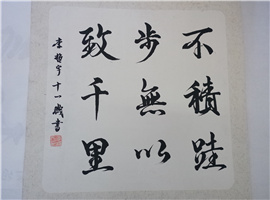 不積跬
步無以
致千里
李哲宇十一歲書